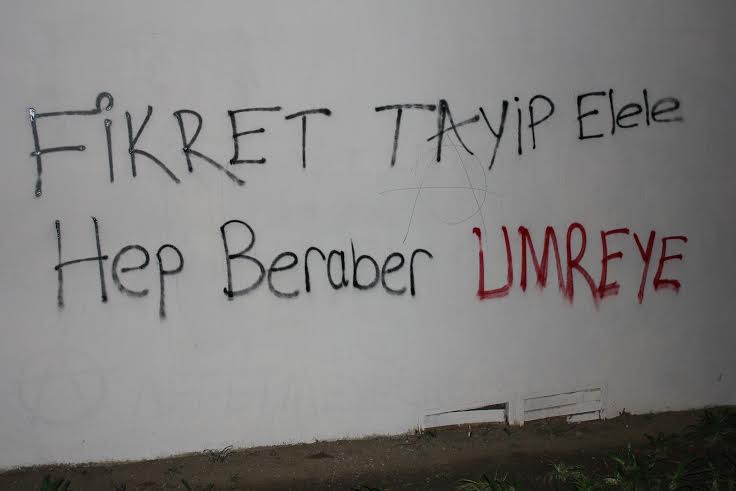 FİKRET TAYİP Elele
Hep Beraber UMREYE